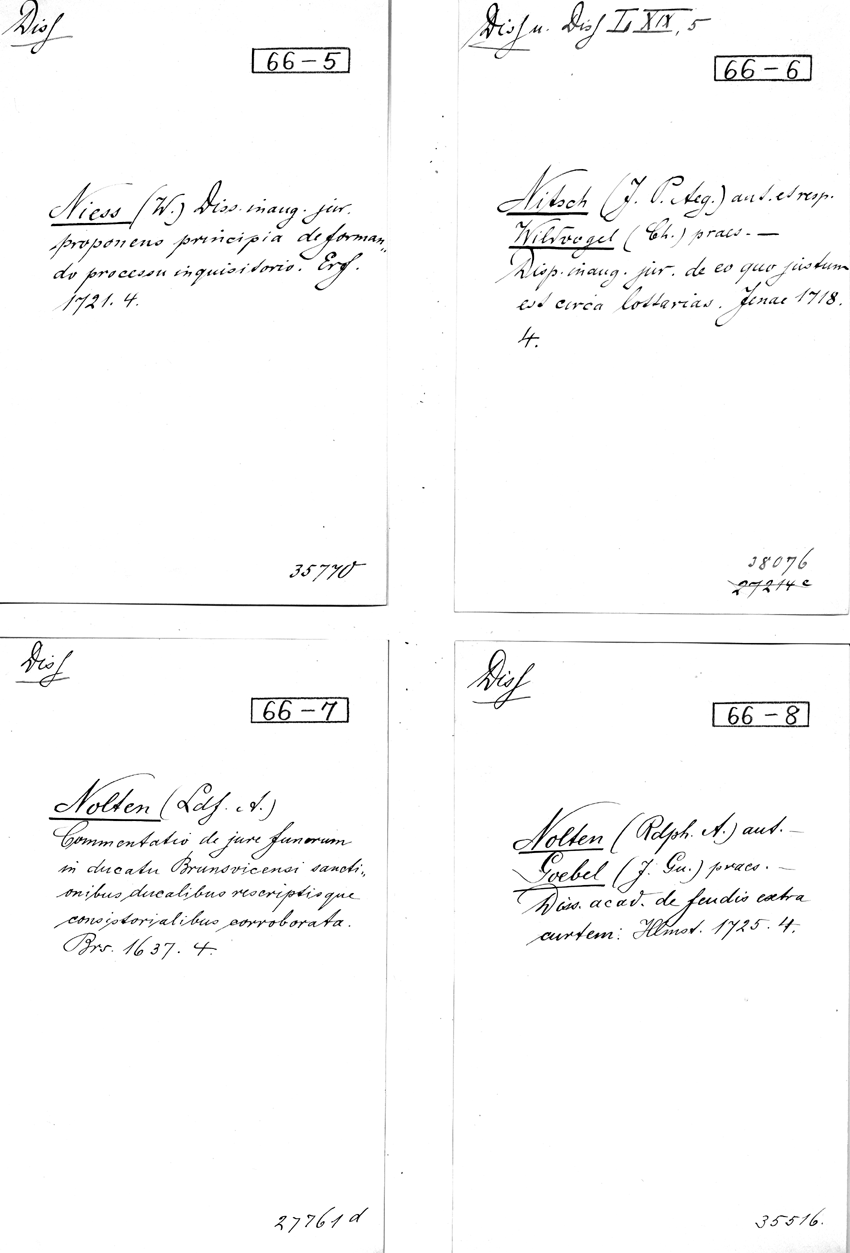 Diss
66-5
Niess (W.) Diss. inaug. jur.
proponens principia de forman„
do processu inquisitorio. Erf.
1721. 4.
35770
Diss u. Diss L XIX, 5
66-6
Nitsch (J. P. Aeg.) aut. et resp.
Wildvogel (Ch.) praes. —
Disp. inaug. jur. de eo quo justum
est circa lottarias. Jenae 1718.
4.
38076
27214 c
Diss
66-7
Nolten (Ldf. A.)
Commentatio de jure funerum
in ducatu Brunsvicensi sancti„
onibus ducalibus rescriptisque
consistorialibus corroborata.
Brs. 1637. 4.
27761 d
Diss
66-8
Nolten (Rdph. A.) aut. —
Goebel (J. Gu.) praes. —
Diss. acad. de feudis extra
curtem. Hlmst. 1725. 4.
35516.